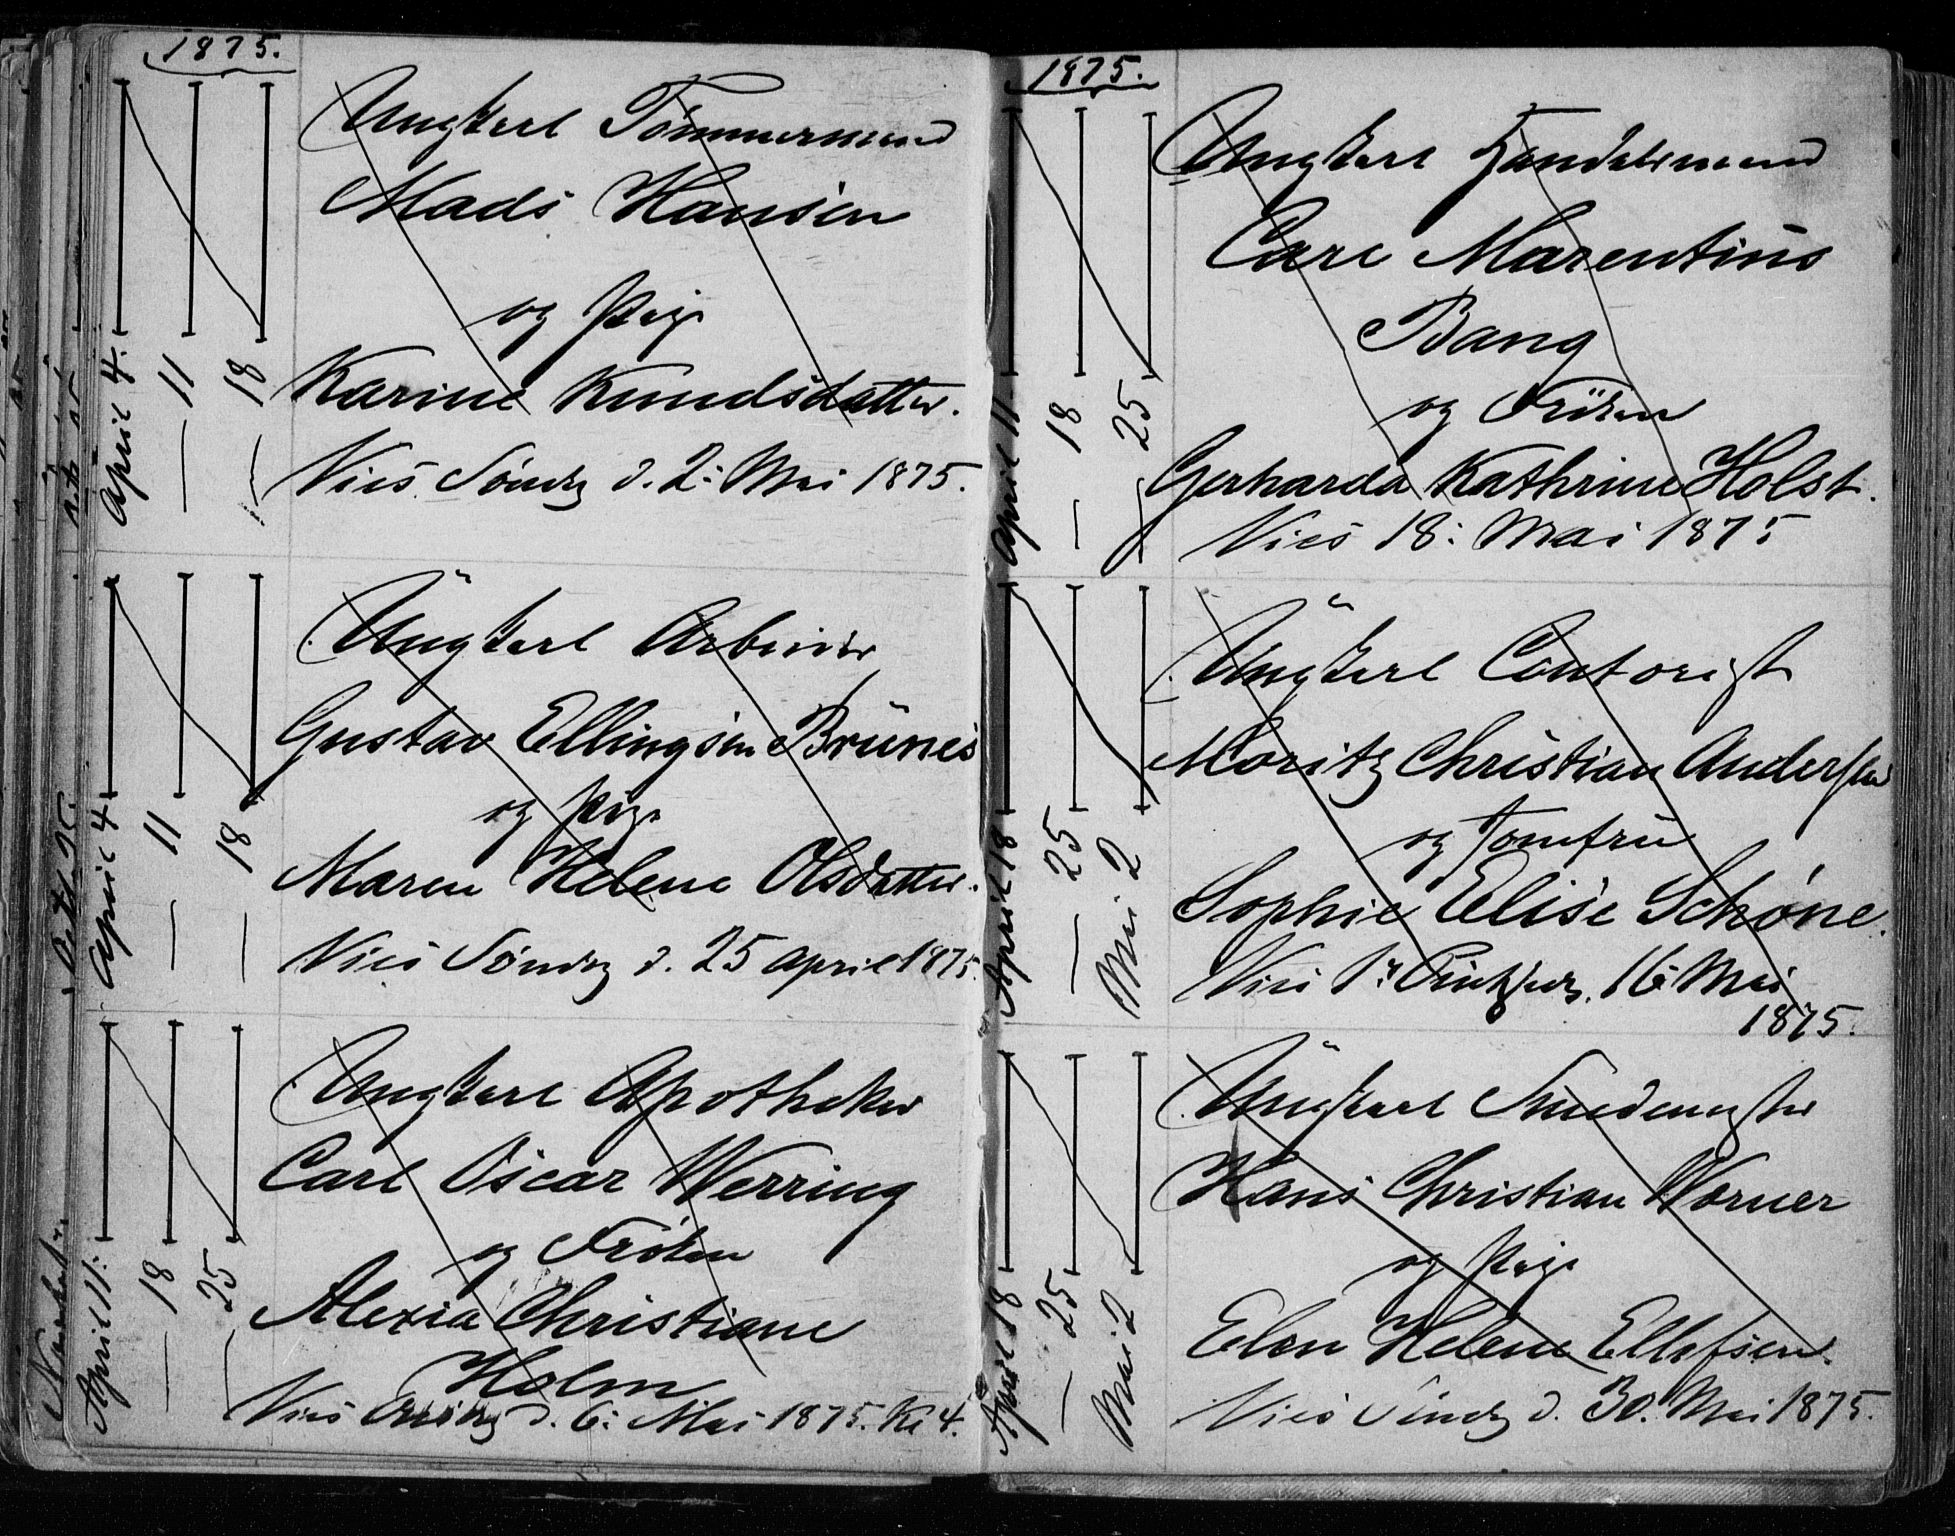 1875.
April 4.
— 11
— 18
Ungkarl Tömmermand
Mads Hansen
og Pige
Karine Knudsdatter.
Vies Søndag d. 2: Mai 1875.
April 4
— 11
— 18
Ungkarl Arbeider
Gustav Ellingsen Brünes
og Pige
Maren Helene Olsdatter.
Vies Søndag d. 25 April 1875.
April 11:
— 18
— 25
Ungkarl Apotheker
Carl Oscar Werring
og Frøken
Alexia Christiane
Holm
Vies d. 6: Mai 1875. Kl 4.
1875.
April 11.
— 18
— 25
Ungkarl Handelsmand
Carl Marentius
Bang
og Fröken
Gerharda Kathrine Holst.
Vies 18: Mai 1875
April 18
— 25
Mai 2
Ungkarl Contorist
Moritz Christian Andersen
og Jomfru
Sophie Elise Schøne.
Vies 1ste 16 Mai
1875.
April 18
— 25
Mai 2
Ungkarl Smedemester
Hans Christian Worner
og Pige
Elen Helene Ellefsen.
Vies Søndag d. 30. Mai 1875.